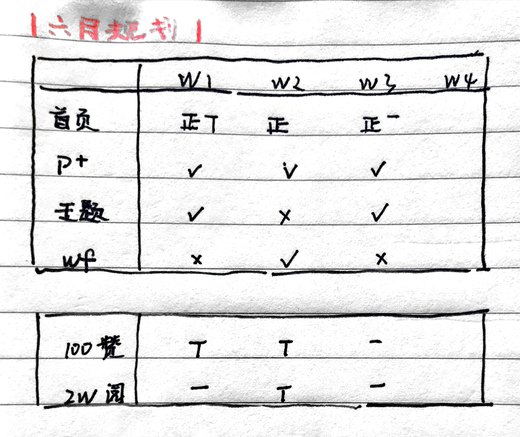 六月规划
W1 W2 W3 W4
首页 正T 正 正一
P+ ✓ ✓ ✓
主题 ✓ × ✓
wf × ✓ ×
100赞 T T 一
2W阅 一 T 一